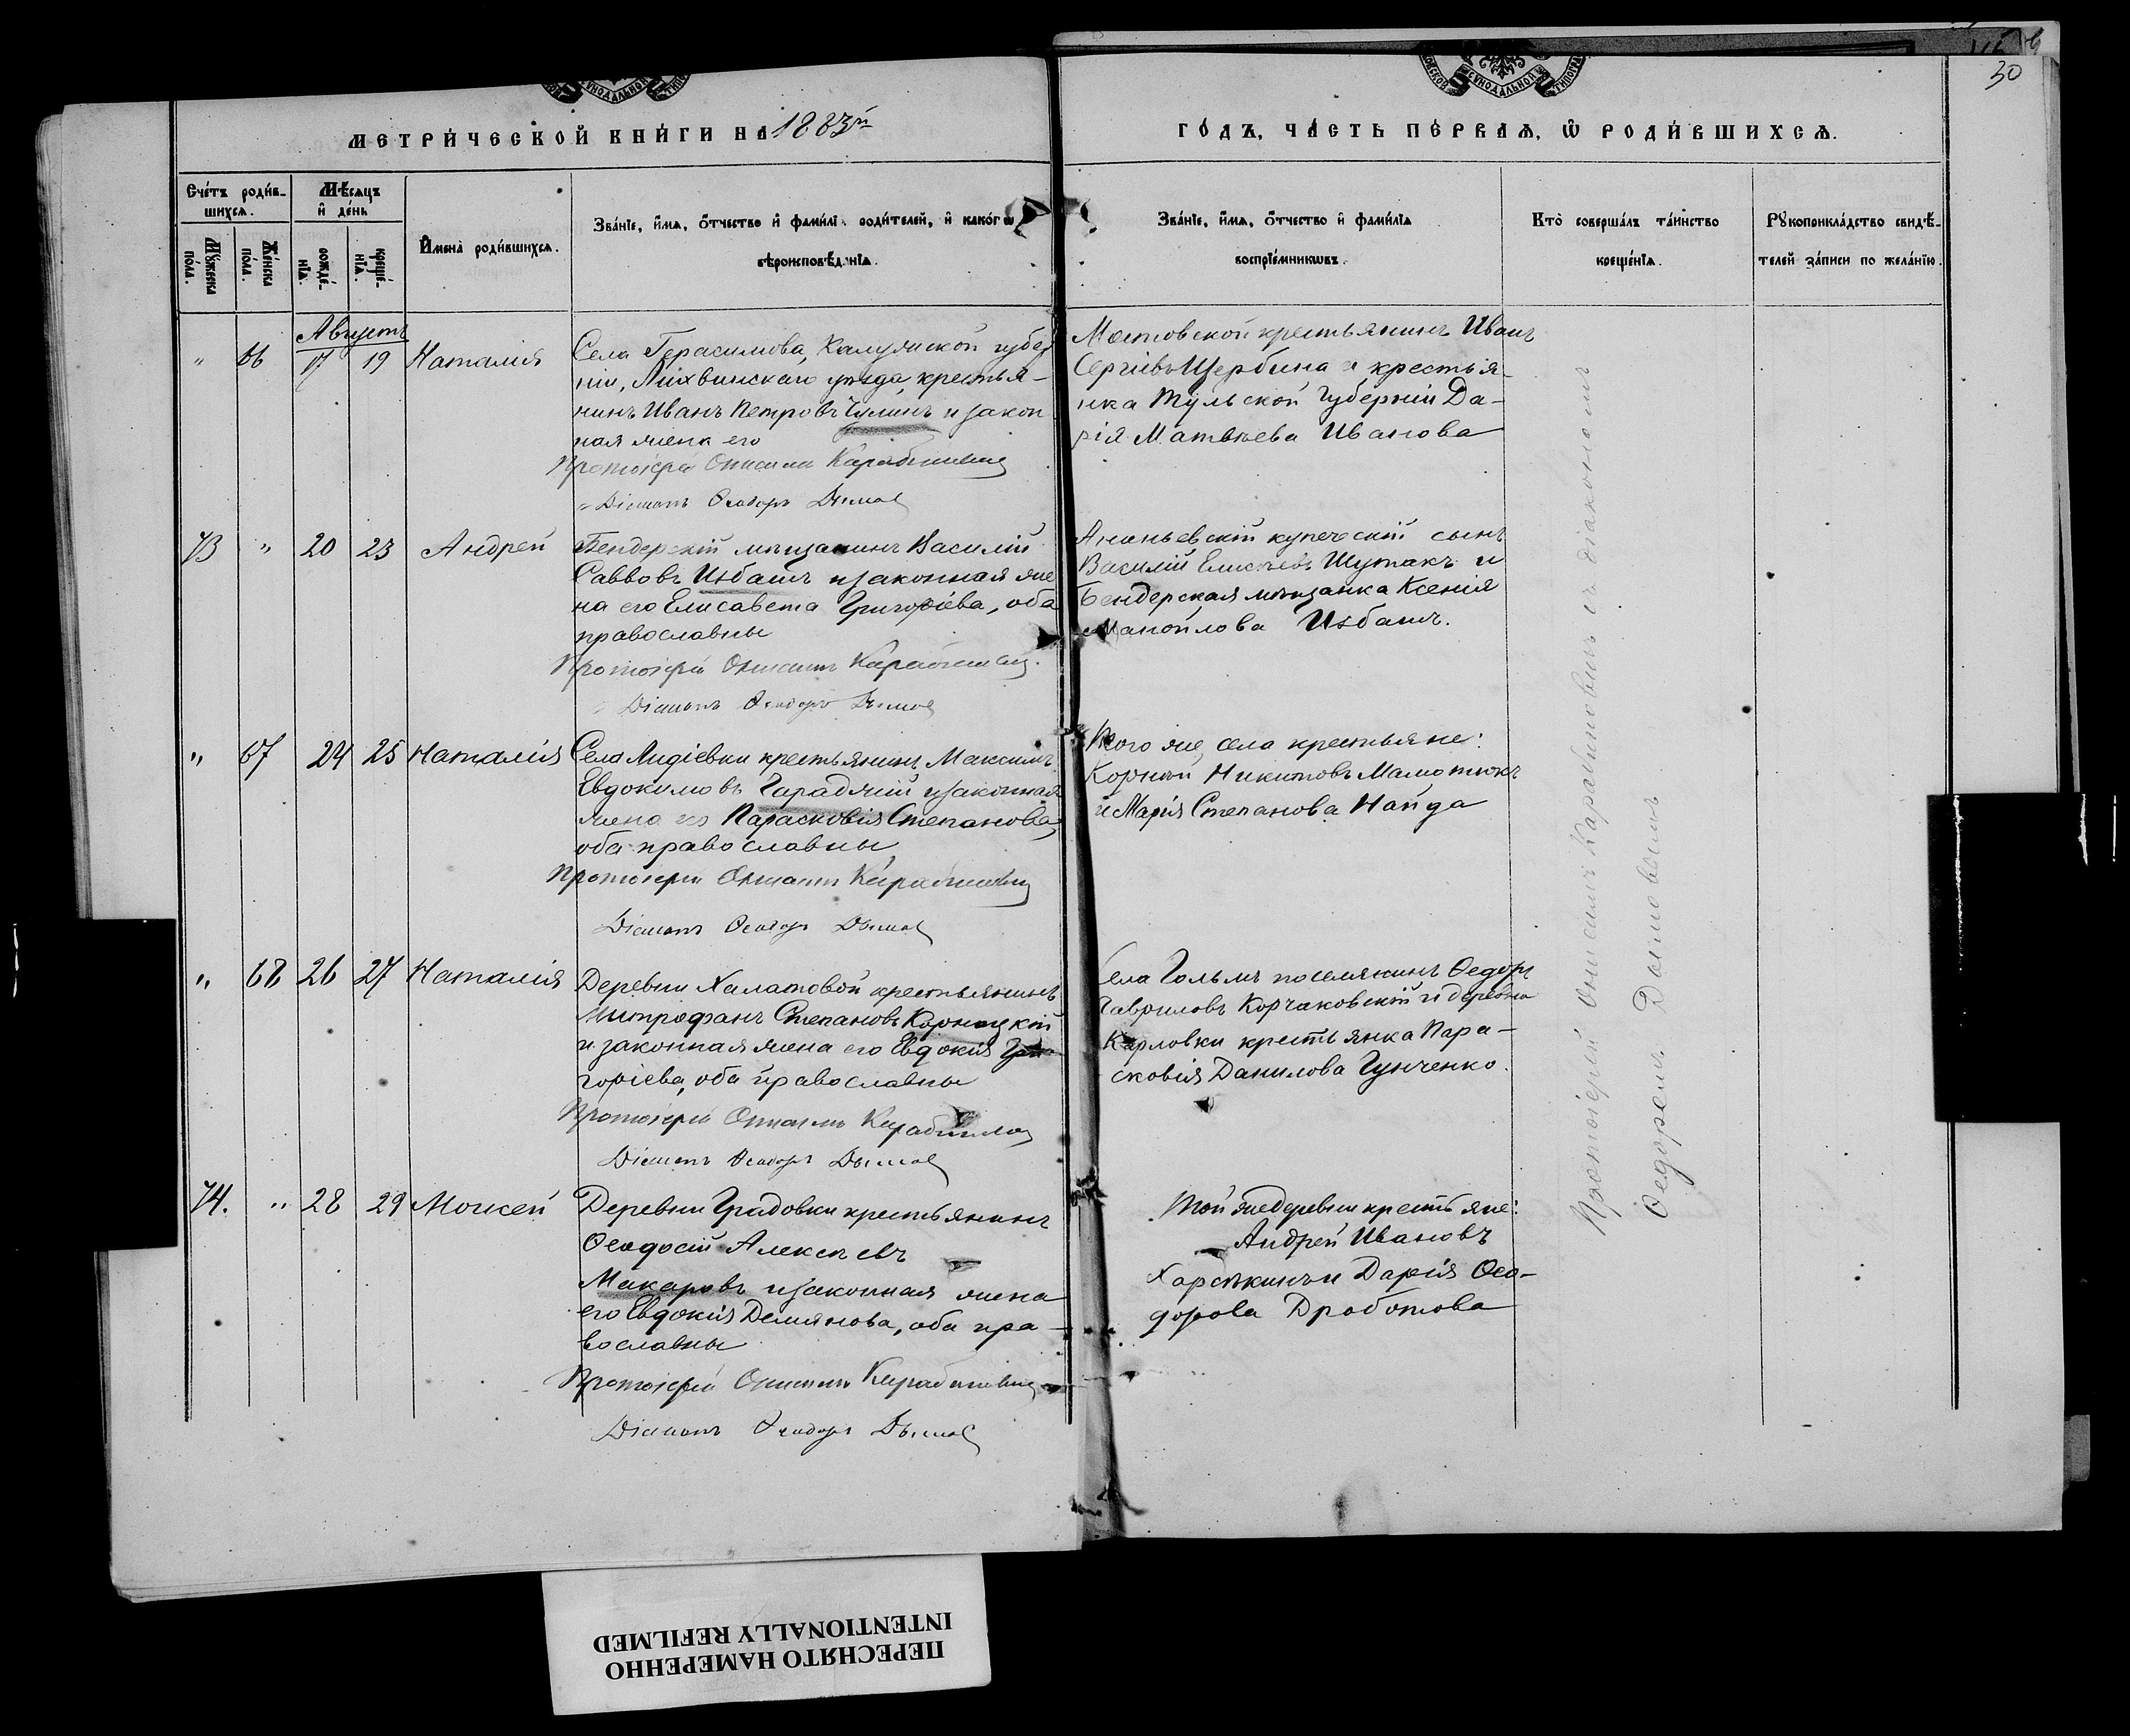 30
МЕТРИ́ЧЕСКОЙ КНИ́ГИ НА 1883й
ГО́ДЪ, ЧА́СТЬ ПЕ́РВАѦ, Ѡ РОДИ́ВШИХСѦ.
Сче́тъ роди́в-
шихсѧ.
Мѣ́сѧцъ
и҆ де́нь
Мꙋ́жеска
по́ла.
Же́нска
по́ла.
рожде́-
нїѧ.
креще́-
нїѧ.
И҆мена̀ роди́вшихсѧ.
Зва́нїе, и҆́мѧ, ѻ҆́тчество и҆ фами́лїѧ роди́телей, и҆ како́гѡ
вѣроисповѣ́данїѧ.
Зва́нїе, и҆́мѧ, ѻ҆́тчество и҆ фами́лїѧ
воспрїе́мникѡвъ.
Кто̀ соверша́лъ та́инство
креще́нїѧ.
Рꙋкоприкла́дство свидѣ́-
телей за́писи по жела́нїю.
Августъ
" 66 17 19 Наталія
Села Герасимова, Калужской губер
ніи, Лихвинскаго уѣзда, крестья-
нинъ Иванъ Петровъ Чулинъ и закон
ная жена его
Протоіерей Онисимъ Карабиневичъ
Діаконъ Ѳеодоръ Дымов
Мостовской крестьянинъ Иванъ
Сергіевъ Щербина и крестья-
нка Тульской Губерніи Да-
рія Матвѣева Иванова
73 " 20 23 Андрей
Бендерскій мѣщанинъ Василій
Савовъ Избашъ и законная же
на его Елисавета Григоріева, оба
православны
Протоіерей Онисимъ Карабиневичъ
Діаконъ Ѳеодоръ Дымов
Ананьевскій купеческій сынъ
Василій Елисѣевъ Шутакъ и
Бендерская мѣщанка Ксенія
Манойлова Избашъ.
" 67 24 25 Наталія
Села Лидіевки крестьянинъ Максимъ
Евдокимовъ Гараджій и законная
жена его Парасковія Степанова,
оба православны
Протоіерей Онисимъ Карабиневичъ
Діаконъ Ѳеодоръ Дымов
Того же села крестьяне:
Корній Никитовъ Маматюкъ
и Марія Степанова Найда
" 68 26 27 Наталія
Деревни Халатовой крестьянинъ
Митрофанъ Степановъ Корницкій
и законная жена его Евдокія Гри-
горіева, оба православны
Протоіерей Онисимъ Карабиневичъ
Діаконъ Ѳеодоръ Дымов
Села Гольмъ поселянинъ Ѳедоръ
Гавриловъ Корчаковскій и деревни
Карловки крестьянка Пара-
сковія Данилова Гунченко.
74. " 28 29 Моисей
Деревни Градовки крестьянинъ
Ѳеодосій Алексѣевъ
Макаровъ и законная жена
его Евдокія Демянова, оба пра-
вославны
Протоіерей Онисимъ Карабиневичъ
Діаконъ Ѳеодоръ Дымов
Той же деревни крестьяне:
Андрей Ивановъ
Харсѣкинъ и Дарія Ѳео-
дорова Дроботова
Протоіерей Онисимъ Карабиновичъ съ діакономъ
Ѳеодоромъ
ПЕРЕСНЯТО НАМЕРЕННО
INTENTIONALLY REFILMED